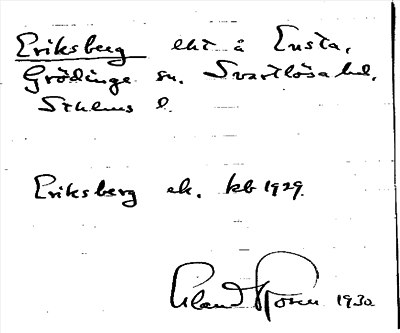 Eriksberg lht å Ensta,
Grödinge sn. Svartlösa hd.
Sthlms l.
Eriksberg ek. kb 1929.
1930